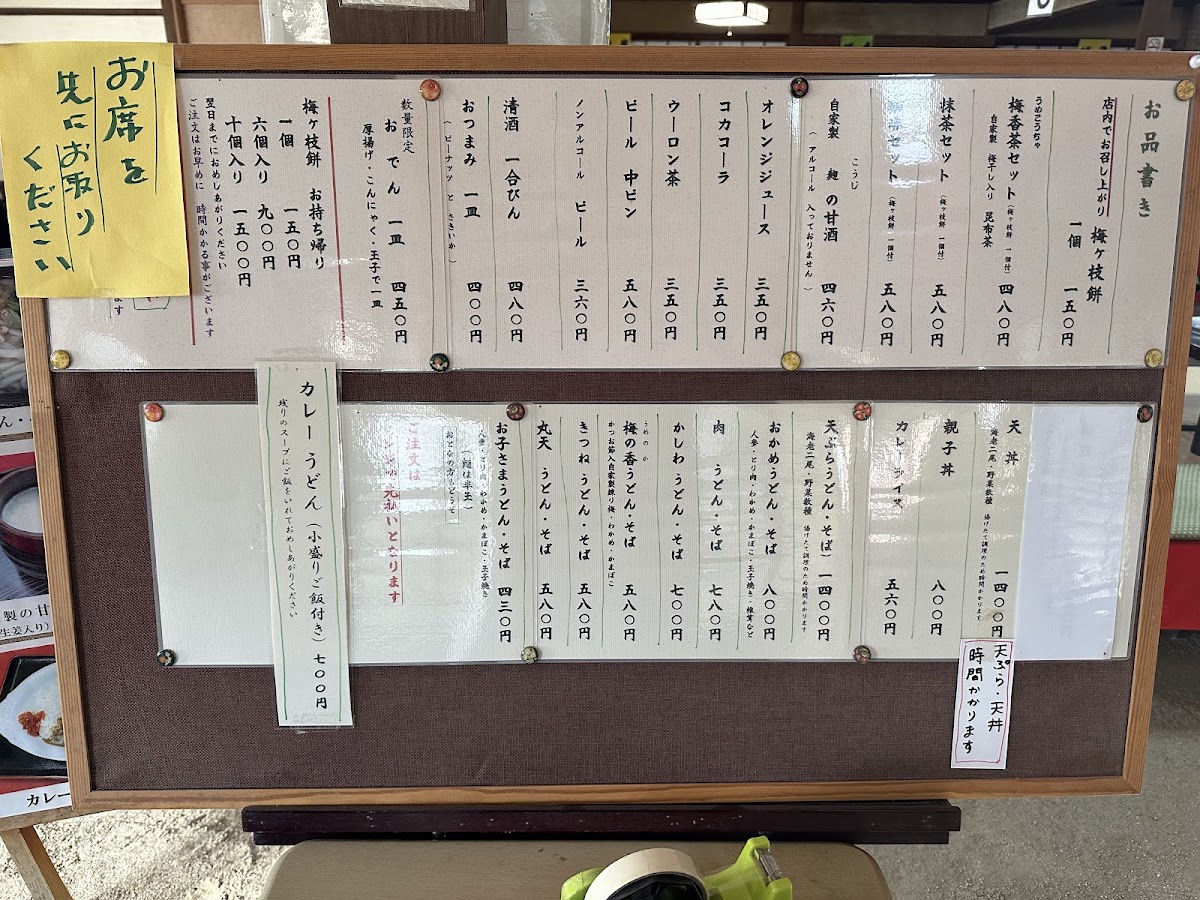 お席を
先にお取り
ください
お品書き
店内でお召し上がり 梅ヶ枝餅
一個 一五〇円
うめこうちゃ
梅香茶セット(梅ヶ枝餅 一個付) 四八〇円
自家製 梅干し入り 昆布茶
抹茶セット(梅ヶ枝餅 一個付) 五八〇円
茶セット(梅ヶ枝餅 一個付) 五八〇円
こうじ
自家製 麹の甘酒 四六〇円
(アルコール 入っておりません)
オレンジジュース 三五〇円
コカコーラ 三五〇円
ウーロン茶 三五〇円
ビール 中ビン 五八〇円
ノンアルコール ビール 三六〇円
清酒 一合びん 四八〇円
おつまみ 一皿 四〇〇円
(ピーナッツ と さきいか)
数量限定
おでん 一皿 四五〇円
厚揚げ・こんにゃく・玉子で一皿
梅ヶ枝餅 お持ち帰り
一個 一五〇円
六個入り 九〇〇円
十個入り 一五〇〇円
翌日までにおめしあがりください
ご注文はお早めに 時間かかる事がございます
ます
天丼 一四〇〇円
海老二尾・野菜数種 揚げたて調理のため時間かかります
親子丼 八〇〇円
カレーライス 五六〇円
天ぷらうどん・そば) 一四〇〇円
海老二尾・野菜数種 揚げたて調理のため時間かかります
おかめうどん・そば 八〇〇円
人参・とり肉・わかめ・かまぼこ・玉子焼き・椎茸など
肉 うどん・そば 七八〇円
かしわうどん・そば 七〇〇円
うめのか
梅の香うどん・そば 五八〇円
かつお節入自家製練り梅・わかめ・かまぼこ
きつねうどん・そば 五八〇円
丸天 うどん・そば 五八〇円
お子さまうどん・そば 四三〇円
人参・とり肉・わかめ・かまぼこ・玉子焼き
(麺は半玉)
おとなの方もどうぞ
ご注文は
先払いとなります
カレーうどん(小盛りご飯付き) 七〇〇円
残りのスープにご飯をいれておめしあがりください
天ぷら・天丼
時間かかります
製の甘
生姜入り)
カレー